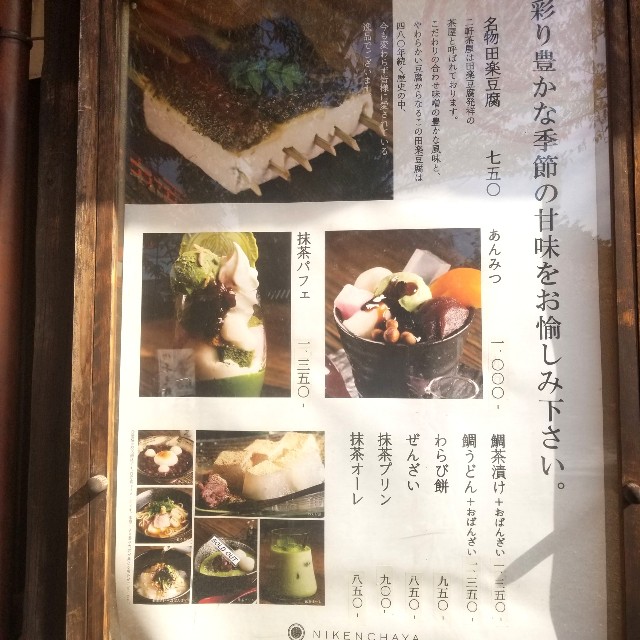 彩り豊かな季節の甘味をお愉しみ下さい。
名物田楽豆腐 七五〇
二軒茶屋は田楽豆腐発祥の
茶屋と呼ばれております。
こだわりの合わせ味噌の豊かな風味と、
やわらかい豆腐からなるこの田楽豆腐は
四八〇年続く歴史の中、
今も変わらず皆様に愛されている
逸品でございます。
あんみつ 一、〇〇〇-
抹茶パフェ 一、三五〇-
鯛茶漬け+おばんざい 一、三五〇-
鯛うどん+おばんざい 一、三五〇-
わらび餅 九五〇-
ぜんざい 八五〇-
抹茶プリン 九〇〇-
抹茶オーレ 八五〇-
SOLD OUT
NIKENCHAYA